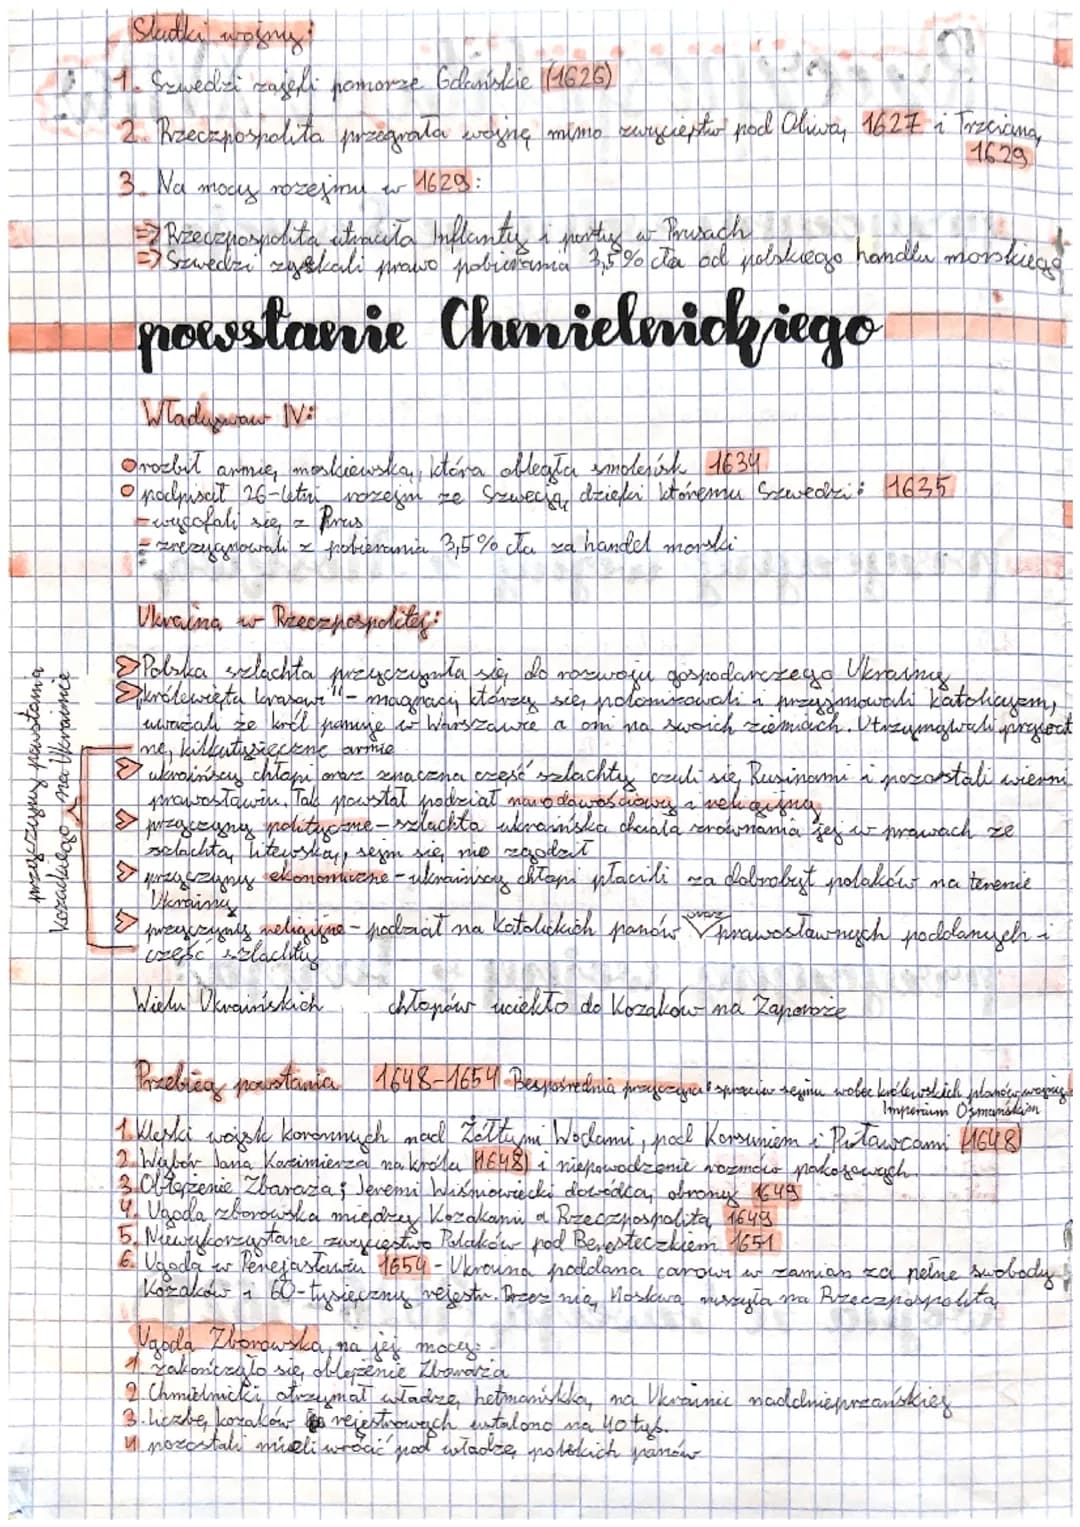 Skutki wojny:
1. Szwedzi zajęli pomorze Gdańskie (1626)
2. Rzeczpospolita przegrała wojnę mimo zwycięstw pod Oliwą, 1627 i Trzcianą,
1629
3. Na mocy rozejmu w 1629:
=> Rzeczpospolita utraciła Inflanty i porty w Prusach
=> Szwedzi zyskali prawo pobierania 3,5% cła od polskiego handlu morskiego
powstanie Chmielnickiego
Władysław IV:
rozbił armię moskiewską, która obległa smoleńsk 1634
podpisał 26-letni rozejm ze Szwecją, dzięki któremu Szwedzi: 1635
- wycofali się z Prus
- zrezygnowali z pobierania 3,5% cła za handel morski
Ukraina w Rzeczpospolitej:
> Polska szlachta przyczyniła się do rozwoju gospodarczego Ukrainy
> „królewięta kresowi" - magnaci którzy się polonizowali i przyjmowali katolicyzm,
uważali że król panuje w Warszawie a oni na swoich ziemiach. Utrzymywali prywat
ne, kilkutysięczne armie
> ukraińscy chłopi oraz znaczna część szlachty czuli się Rusinami i pozostali wierni
prawosławiu. Tak powstał podział narodowościowy i religijny
> przyczyny polityczne - szlachta ukraińska chciała zrównania jej w prawach ze
szlachtą litewską, sejm się nie zgodził
> przyczyny ekonomiczne - ukraińscy chłopi płacili za dobrobyt polaków na terenie
Ukrainy
> przyczyny religijne - podział na katolickich panów oraz prawosławnych poddanych i
część szlachty
przyczyny powstania
kozackiego na Ukrainie
Wielu Ukraińskich chłopów uciekło do Kozaków na Zaporoże
Przebieg powstania 1648-1654 Bespośrednia przyczyna: sprzeciw sejmu wobec królewskich planów wojny z
Imperium Osmańskim
1. Klęski wojsk koronnych nad Żółtymi Wodami, pod Korsuniem i Piławcami (1648)
2. Wybór Jana Kazimierza na króla (1648) i niepowodzenie rozmów pokojowych
3. Oblężenie Zbaraża; Jeremi Wiśniowiecki dowódcą obrony 1649
4. Ugoda zborowska między Kozakami a Rzeczpospolitą 1649
5. Niewykorzystane zwycięstwo Polaków pod Beresteczkiem 1651
6. Ugoda w Perejasławiu 1654 - Ukraina poddana carowi w zamian za pełne swobody
Kozaków i 60-tysięczny rejestr. Przez nią Moskwa ruszyła na Rzeczpospolitą
Ugoda Zborowska, na jej mocy:
1. zakończyło się oblężenie Zbaraża
2. Chmielnicki otrzymał władzę hetmańską na Ukrainie naddnieprzańskiej
3. liczbę kozaków rejestrowych ustalono na 40 tys.
4. pozostali mieli wrócić pod władzę polskich panów